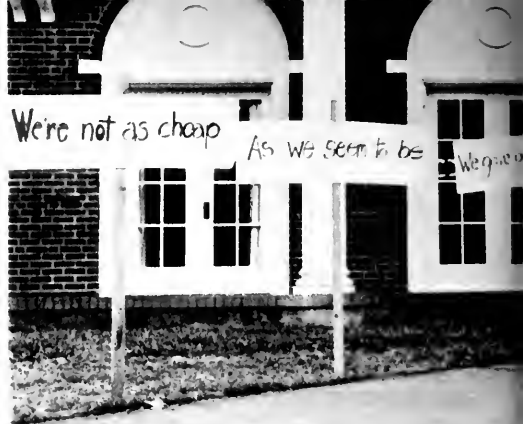 We're not as cheap
As we seem to be
We gave